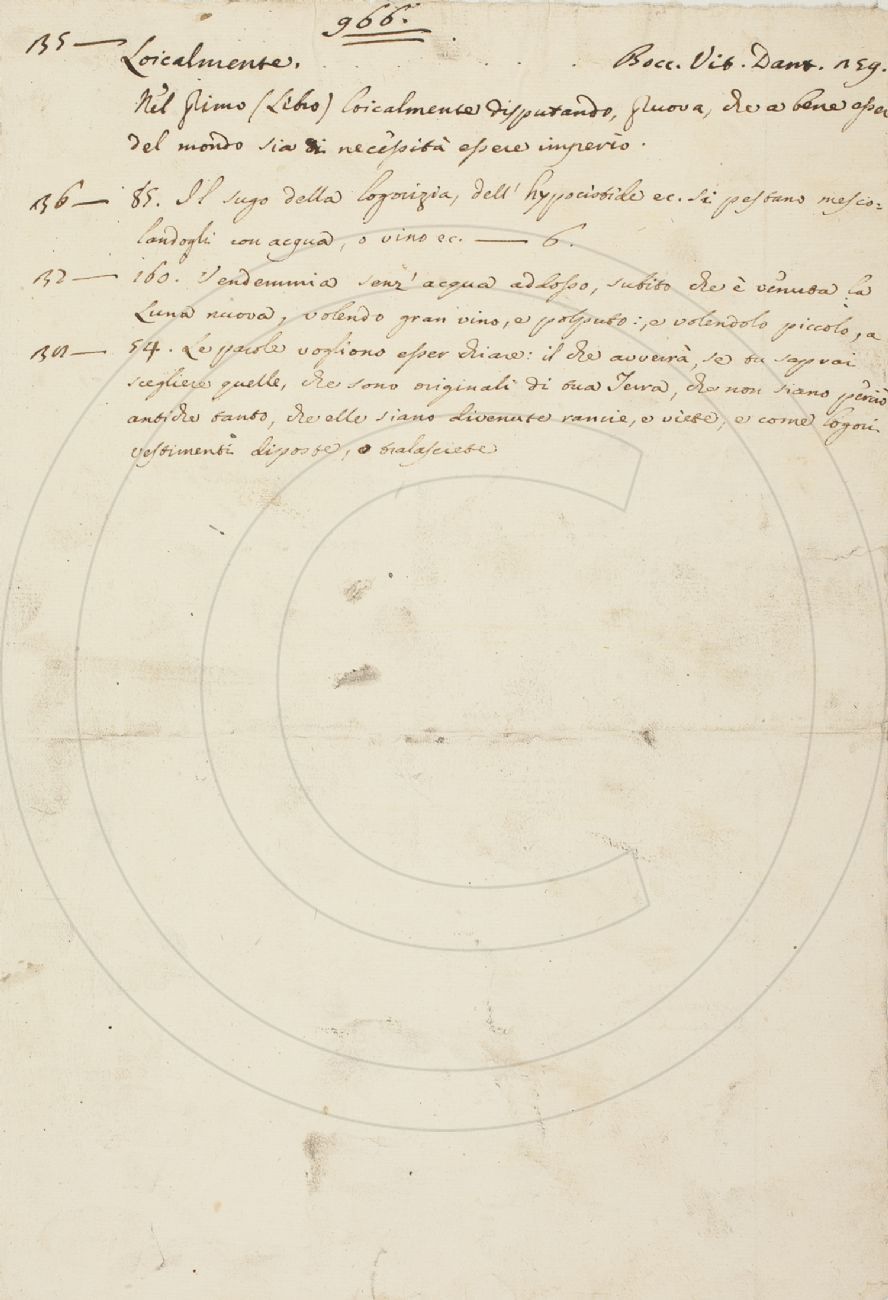 966.
135 — Loicalmente. . . . . . Bocc. Vit. Dant. 259.
Nel primo (Libro) loicalmente disputando, pruova, che a bene esser
del mondo sia di necessità essere imperio.
136 — 85. Il sugo della logorizia, dell' hypocistide ec. si pestano mesco=
landogli con acqua, o vino ec. — 6.
137 — 160. Vendemmia senz' acqua addosso, subito che è venuta la
Luna nuova, volendo gran vino, e polputo:, e volendolo piccolo, a
138 — 54. Le parole vogliono esser chiare: il che avverrà, se tu saprai
scegliere quelle, che sono originali di tua Terra, che non siano perciò
antiche tanto, che elle siano divenute rancie, e viete, e come logori
vestimenti diposte, o tralasciete